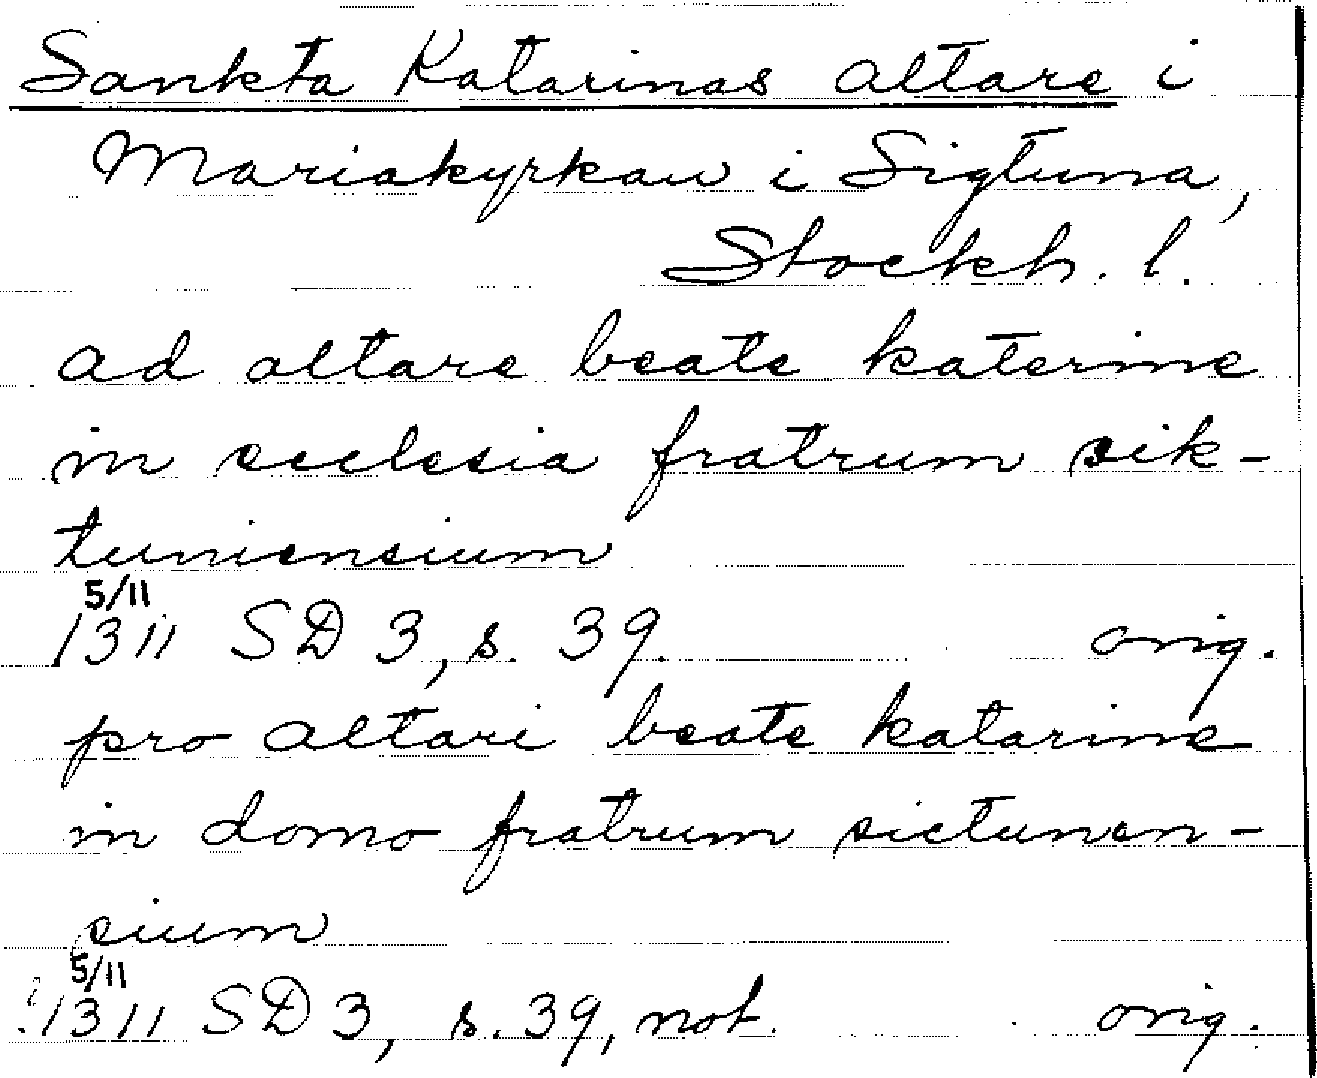 Sankta Katarinas altare i
Mariakyrkan i Sigtuna,
Stockh. l.
ad altare beate katerine
in ecclesia fratrum sik-
tuniensium
5/11
1311 SD 3, s. 39. orig.
pro altari beate katarine
in domo fratrum sictunen-
sium
5/11
1311 SD 3, s. 39, not. orig.